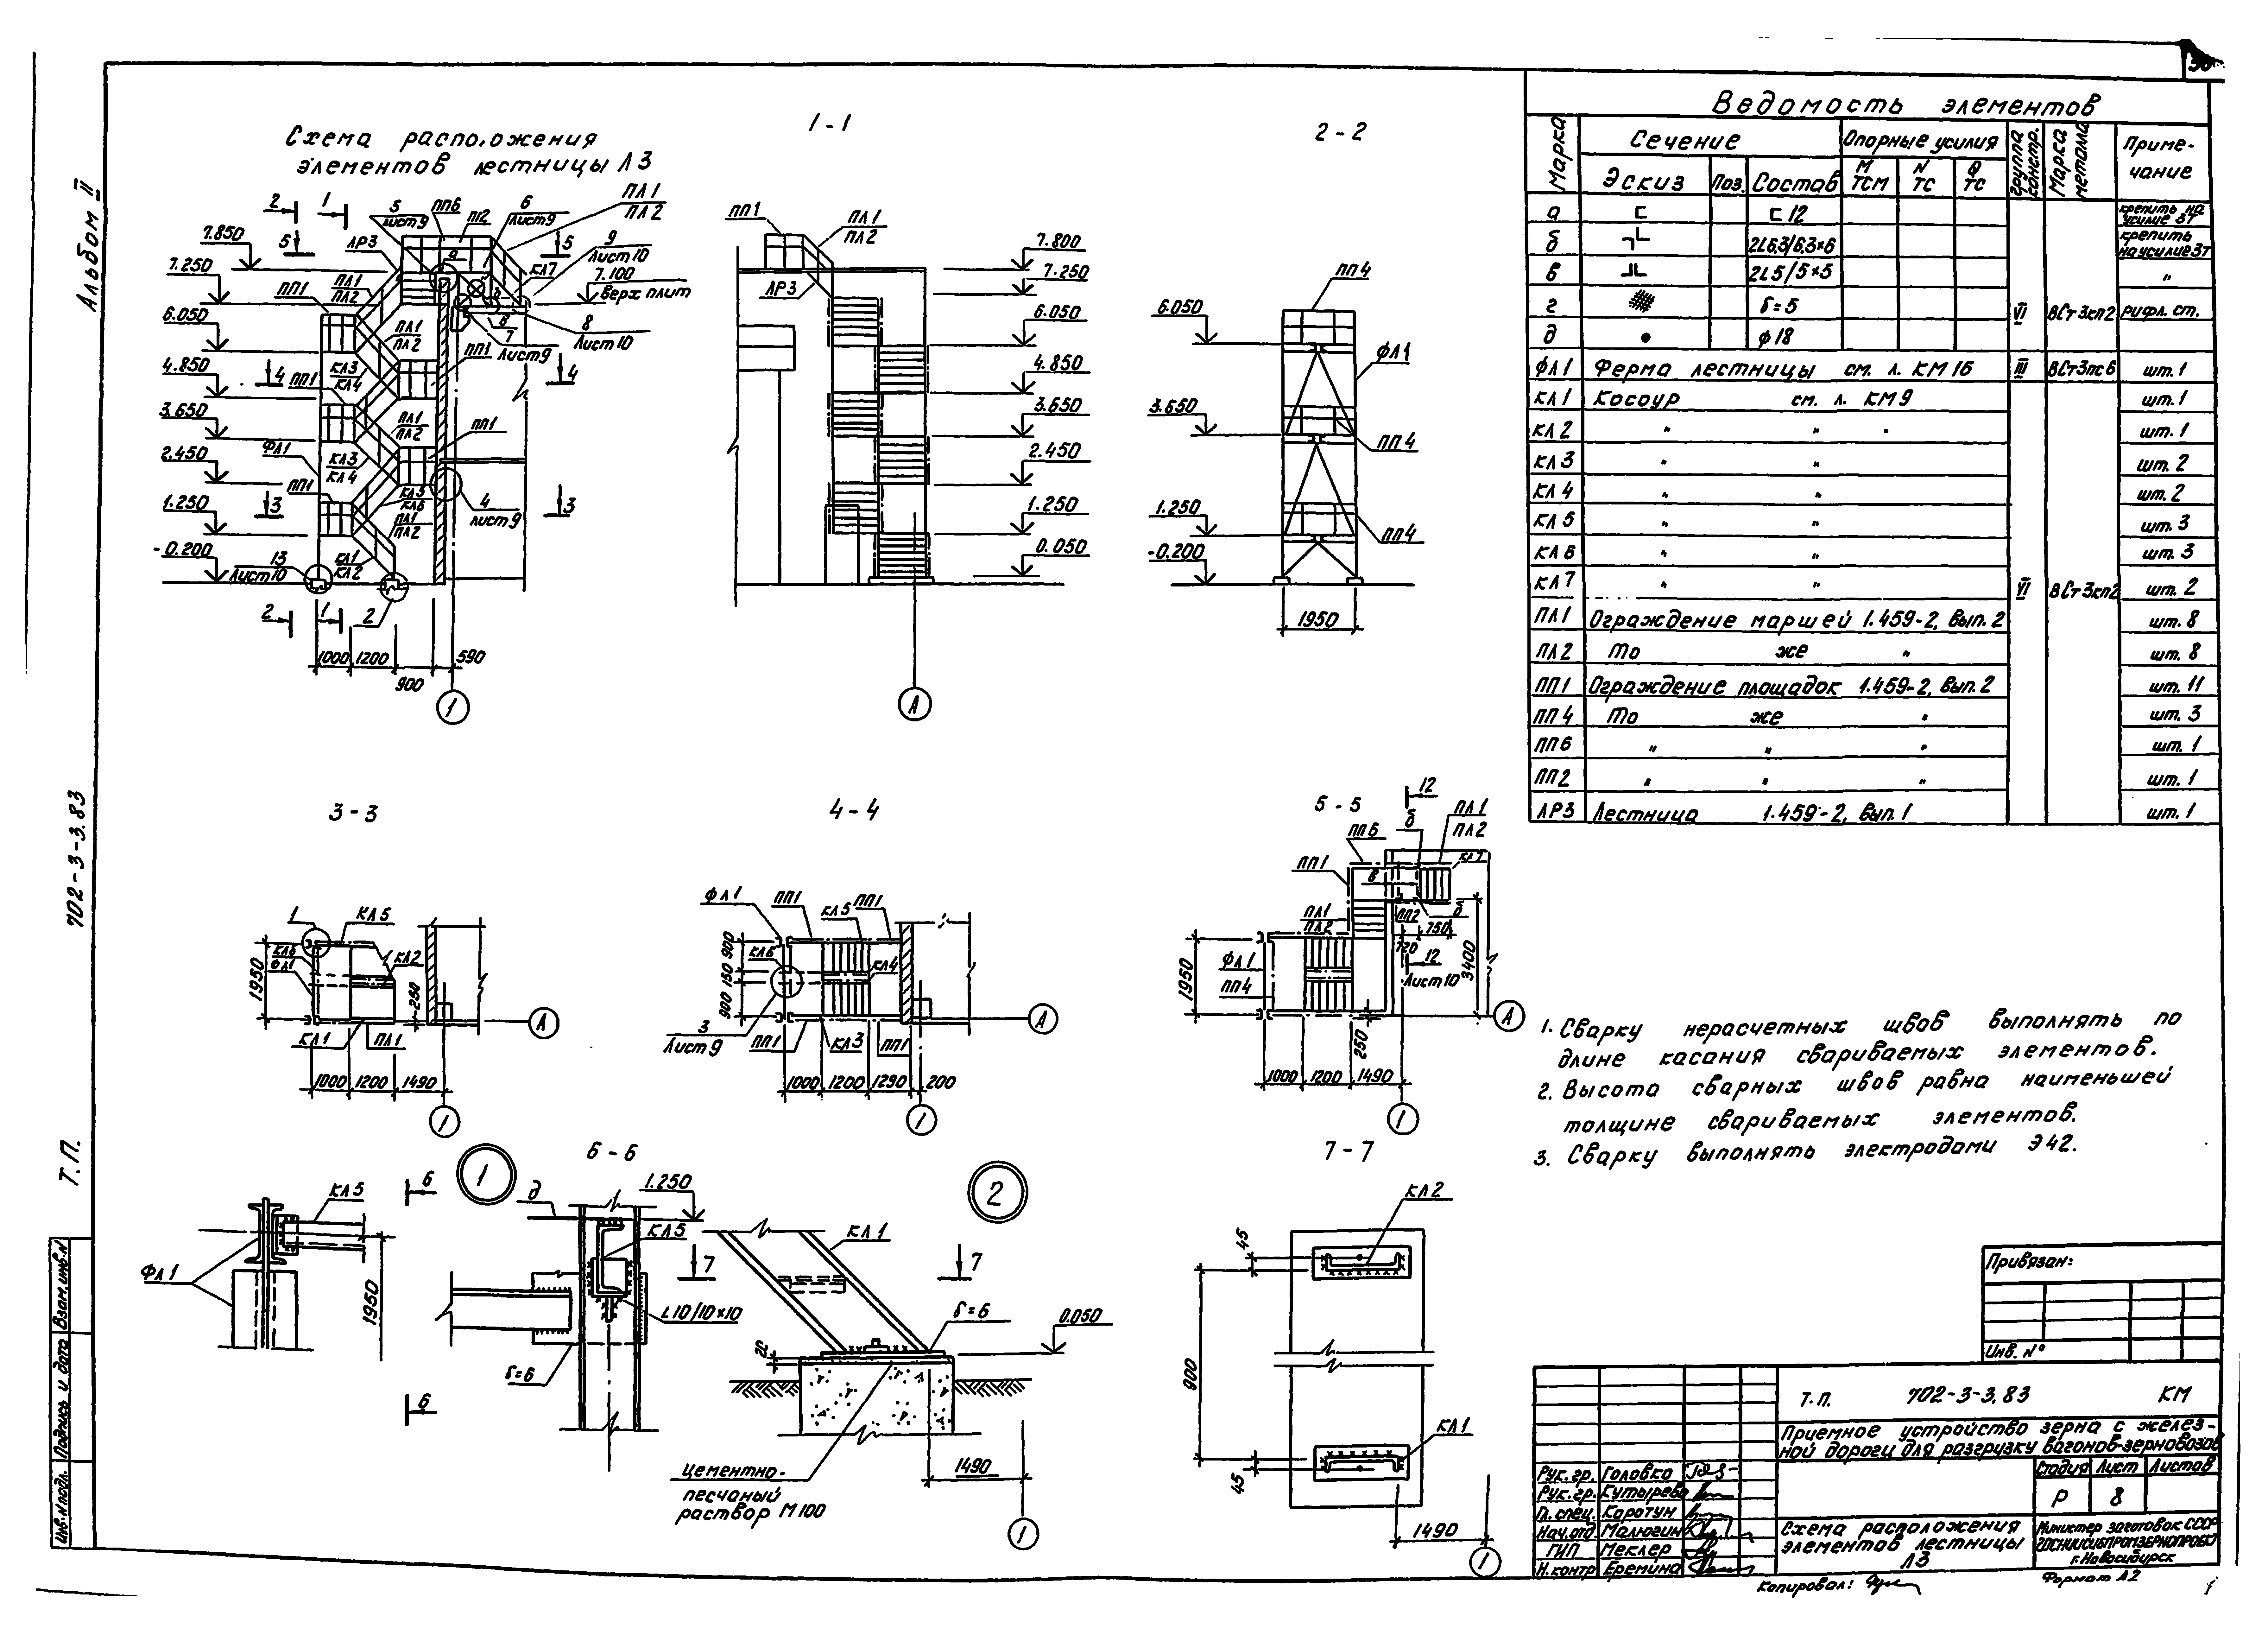 Альбом II
702-3-3.83
Т.П.
Инв.N подл.
Подпись и дата
Взам.инв.N
Схема расположения
элементов лестницы Л3
2
1
5
Лист9
ПП6
ПП2
6
Лист9
ПЛ1
ПЛ2
7.850
5
5
9
Лист10
ЛР3
а
КЛ7
7.250
ПЛ1
ПЛ2
ПП1
7.100
верх плит
6.050
ПЛ1
ПЛ2
в
7
Лист9
8
Лист10
4.850
4
ПП1
КЛ3
КЛ4
ПП1
4
3.650
ПЛ1
ПЛ2
ПП1
ФЛ1
2.450
КЛ3
КЛ4
ПП1
КЛ5
КЛ6
4
Лист9
1.250
3
ПЛ1
ПЛ2
3
-0.200
13
Лист10
КЛ1
КЛ2
2
1
2
1000
1200
590
900
1
1-1
ПП1
ПЛ1
ПЛ2
7.800
ЛР3
7.250
6.050
4.850
3.650
2.450
1.250
0.050
А
2-2
ПП4
6.050
ФЛ1
3.650
ПП4
1.250
ПП4
-0.200
1950
Ведомость элементов
Марка
Сечение
Опорные усилия
Группа констр.
Марка металла
Приме-
чание
Эскиз
Поз.
Состав
М ТСМ
N ТС
Q ТС
а ⊏ 12 крепить на усилие 3Т
б 2L6.3/6.3×6 крепить на усилие 3т
в 2L5/5×5 "
г δ=5 VI ВСт3кп2 рифл. ст.
д ϕ18
ФЛ1 Ферма лестницы см. л. КМ16 III ВСт3пс6 шт. 1
КЛ1 Косоур см. л. КМ9 шт. 1
КЛ2 " " шт. 1
КЛ3 " " шт. 2
КЛ4 " " шт. 2
КЛ5 " " шт. 3
КЛ6 " " шт. 3
КЛ7 " " VI ВСт3кп2 шт. 2
ПЛ1 Ограждение маршей 1.459-2, вып. 2 шт. 8
ПЛ2 То же " шт. 8
ПП1 Ограждение площадок 1.459-2, вып. 2 шт. 11
ПП4 То же " шт. 3
ПП6 " " " шт. 1
ПП2 " " " шт. 1
ЛР3 Лестница 1.459-2, вып. 1 шт. 1
3-3
1
КЛ5
КЛ6
ФЛ1
КЛ2
1950
250
КЛ1
ПЛ1
А
1000
1200
1490
1
4-4
ФЛ1
ПП1
КЛ5
ПП1
КЛ6
КЛ4
900
150
900
3
Лист9
ПП1
КЛ3
ПП1
А
1000
1200
1290
200
1
5-5
12
б
ПЛ1
ПЛ2
ПП6
ПП1
КЛ7
в
ПЛ1
ПЛ2
ПП2
б
750
720
12
Лист10
3400
ФЛ1
ПП4
1950
А
250
1000
1200
1490
1
1. Сварку нерасчетных швов выполнять по
длине касания свариваемых элементов.
2. Высота сварных швов равна наименьшей
толщине свариваемых элементов.
3. Сварку выполнять электродами Э42.
1
КЛ5
6
ФЛ1
1950
6
6-6
д
1.250
КЛ5
L10/10×10
δ=6
2
КЛ1
7
7
δ=6
0.050
Цементно-
песчаный
раствор М100
1490
1
7-7
КЛ2
45
900
КЛ1
45
1490
1
Привязан:
Инв. N°
Т.П. 702-3-3.83 КМ
Приемное устройство зерна с желез-
ной дороги для разгрузки вагонов-зерновозов
Стадия Лист Листов
Р 8
Рук. гр. Головко
Рук. гр. Кутырева
Гл. спец. Коротун
Нач. отд Малюгин
ГИП Меклер
Н. контр Еремина
Схема расположения
элементов лестницы
Л3
Министер заготовок СССР
ГОСНИИСИБПРОМЗЕРНОПРОЕКТ
г. Новосибирск
Копировал:
Формат А2